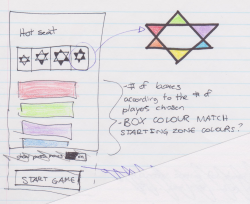 Hot seat
- # of boxes
according to the # of
players chosen
- BOX COLOUR MATCH
STARTING ZONE COLOURS?
START GAME